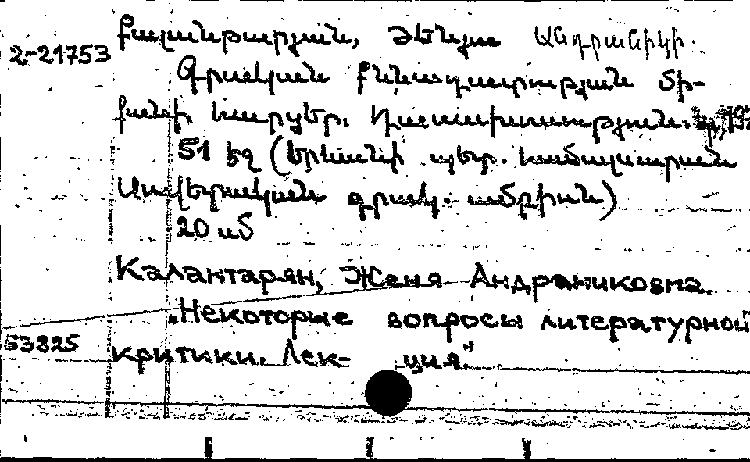 2-21753
Քալանթարյան, Ժենյա Անդրանիկի.
Գրական քննադատության մի-
քանի հարցեր. Դասախոսություն.
51 էջ (Երևանի պետ. համալսարան
Սովետական գրակ. ամբիոն)
20 սմ
Калантарян, Женя Андраниковна.
"Некоторые вопросы литературной
53825 критики. Лек- ция."